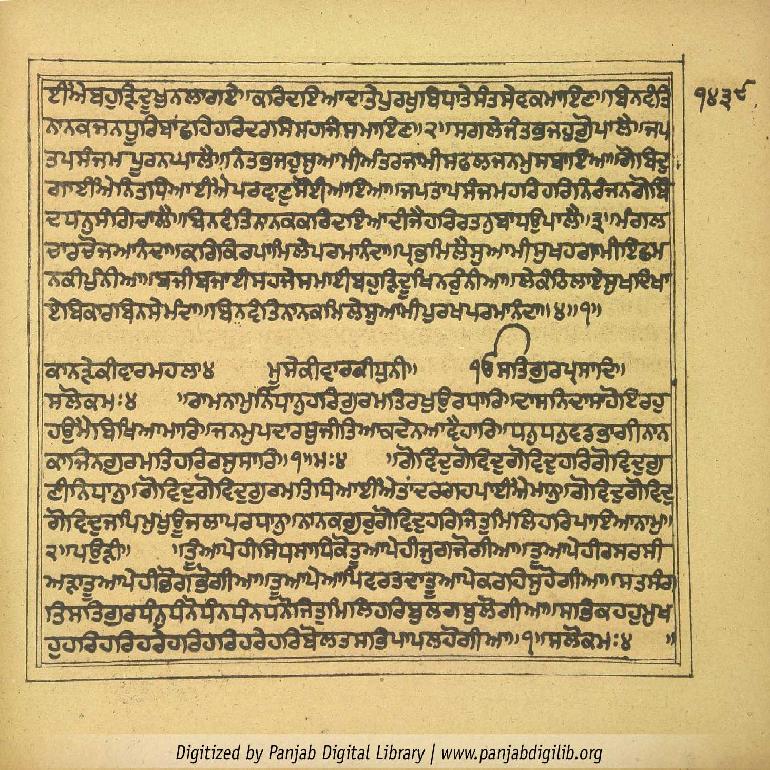 ਈਐ ਬਹੁੜਿ ਦੂਖੁ ਨ ਲਾਗਏ॥ ਕਰਿ ਦਇਆ ਦਾਤੇ ਪੁਰਖ ਬਿਧਾਤੇ ਸੰਤ ਸੇਵ ਕਮਾਇਣ॥ ਬਿਨਵੰਤਿ
ਨਾਨਕ ਜਨ ਧੂਰਿ ਬਾਂਛਹਿ ਹਰਿ ਦਰਸਿ ਸਹਜਿ ਸਮਾਇਣ॥੨॥ ਸਗਲੇ ਜੰਤ ਭਜਹੁ ਗੋਪਾਲੈ॥ ਜਪ
ਤਪ ਸੰਜਮ ਪੂਰਨ ਘਾਲੈ॥ ਨਿਤ ਭਜਹੁ ਸੁਆਮੀ ਅੰਤਰਜਾਮੀ ਸਫਲ ਜਨਮੁ ਸਬਾਇਆ॥ ਗੋਬਿਦੁ
ਗਾਈਐ ਨਿਤ ਧਿਆਈਐ ਪਰਵਾਣੁ ਸੋਈ ਆਇਆ॥ ਜਪ ਤਾਪ ਸੰਜਮ ਹਰਿ ਹਰਿ ਨਿਰੰਜਨ ਗੋਬਿੰ
ਦ ਧਨੁ ਸੰਗਿ ਚਾਲੈ॥ ਬਿਨਵੰਤਿ ਨਾਨਕ ਕਰਿ ਦਇਆ ਦੀਜੈ ਹਰਿ ਰਤਨੁ ਬਾਧਉ ਪਾਲੈ॥੩॥ ਮੰਗਲ
ਚਾਰ ਚੋਜ ਆਨੰਦਾ॥ ਕਰਿ ਕਿਰਪਾ ਮਿਲੇ ਪਰਮਾਨੰਦਾ॥ ਪ੍ਰਭ ਮਿਲੇ ਸੁਆਮੀ ਸੁਖਹ ਗਾਮੀ ਇਛ ਮ
ਨ ਕੀ ਪੁੰਨੀਆ॥ ਬਜੀ ਬਜਾਈ ਸਹਜੇ ਸਮਾਈ ਬਹੁੜਿ ਦੂਖਿ ਨ ਰੁੰਨੀਆ॥ ਲੇ ਕੰਠਿ ਲਾਏ ਸੁਖ ਦਿਖਾ
ਏ ਬਿਕਾਰ ਬਿਨਸੇ ਮੰਦਾ॥ ਬਿਨਵੰਤਿ ਨਾਨਕ ਮਿਲੇ ਸੁਆਮੀ ਪੁਰਖ ਪਰਮਾਨੰਦਾ॥੪॥੧॥
ਕਾਨੜੇ ਕੀ ਵਾਰ ਮਹਲਾ ੪ ਮੂਸੇ ਕੀ ਵਾਰ ਕੀ ਧੁਨੀ॥ ੴ ਸਤਿਗੁਰ ਪ੍ਰਸਾਦਿ॥
ਸਲੋਕ ਮਃ ੪ ॥ ਰਾਮ ਨਾਮੁ ਨਿਧਾਨੁ ਹਰਿ ਗੁਰਮਤਿ ਰਖੁ ਉਰ ਧਾਰਿ॥ ਦਾਸਨ ਦਾਸਾ ਹੋਇ ਰਹੁ
ਹਉਮੈ ਬਿਖਿਆ ਮਾਰਿ॥ ਜਨਮੁ ਪਦਾਰਥੁ ਜੀਤਿਆ ਕਦੇ ਨ ਆਵੈ ਹਾਰਿ॥ ਧਨੁ ਧਨੁ ਵਡਭਾਗੀ ਨਾਨ
ਕਾ ਜਿਨ ਗੁਰਮਤਿ ਹਰਿ ਰਸੁ ਸਾਰਿ॥੧॥ ਮਃ ੪ ॥ ਗੋਵਿੰਦੁ ਗੋਵਿਦੁ ਗੋਵਿਦੁ ਹਰਿ ਗੋਵਿਦੁ ਗੁ
ਣੀ ਨਿਧਾਨੁ॥ ਗੋਵਿਦੁ ਗੋਵਿਦੁ ਗੁਰਮਤਿ ਧਿਆਈਐ ਤਾਂ ਦਰਗਹ ਪਾਈਐ ਮਾਨੁ॥ ਗੋਵਿਦੁ ਗੋਵਿਦੁ
ਗੋਵਿਦੁ ਜਪਿ ਮੁਖੁ ਊਜਲਾ ਪਰਧਾਨੁ॥ ਨਾਨਕ ਗੁਰੁ ਗੋਵਿੰਦੁ ਹਰਿ ਜਿਤੁ ਮਿਲਿ ਹਰਿ ਪਾਇਆ ਨਾਮੁ॥
੨॥ ਪਉੜੀ॥ ॥ਤੂੰ ਆਪੇ ਹੀ ਸਿਧ ਸਾਧਿਕੋ ਤੂ ਆਪੇ ਹੀ ਜੁਗ ਜੋਗੀਆ॥ ਤੂ ਆਪੇ ਹੀ ਰਸ ਰਸੀ
ਅੜਾ ਤੂ ਆਪੇ ਹੀ ਭੋਗ ਭੋਗੀਆ॥ ਤੂ ਆਪੇ ਆਪਿ ਵਰਤਦਾ ਤੂ ਆਪੇ ਕਰਹਿ ਸੁ ਹੋਗੀਆ॥ ਸਤਸੰਗ
ਤਿ ਸਤਿਗੁਰ ਧੰਨੁ ਧੰਨੋ ਧੰਨ ਧੰਨ ਧਨੋ ਜਿਤੁ ਮਿਲਿ ਹਰਿ ਬੁਲਗ ਬੁਲੋਗੀਆ॥ ਸਭਿ ਕਹਹੁ ਮੁਖ
ਹੁ ਹਰਿ ਹਰਿ ਹਰੇ ਹਰਿ ਹਰਿ ਹਰੇ ਹਰਿ ਬੋਲਤ ਸਭਿ ਪਾਪ ਲਹੋਗੀਆ॥੧॥ ਸਲੋਕ ਮਃ ੪ ॥
੧੪੩੬
Digitized by Panjab Digital Library | www.panjabdigilib.org